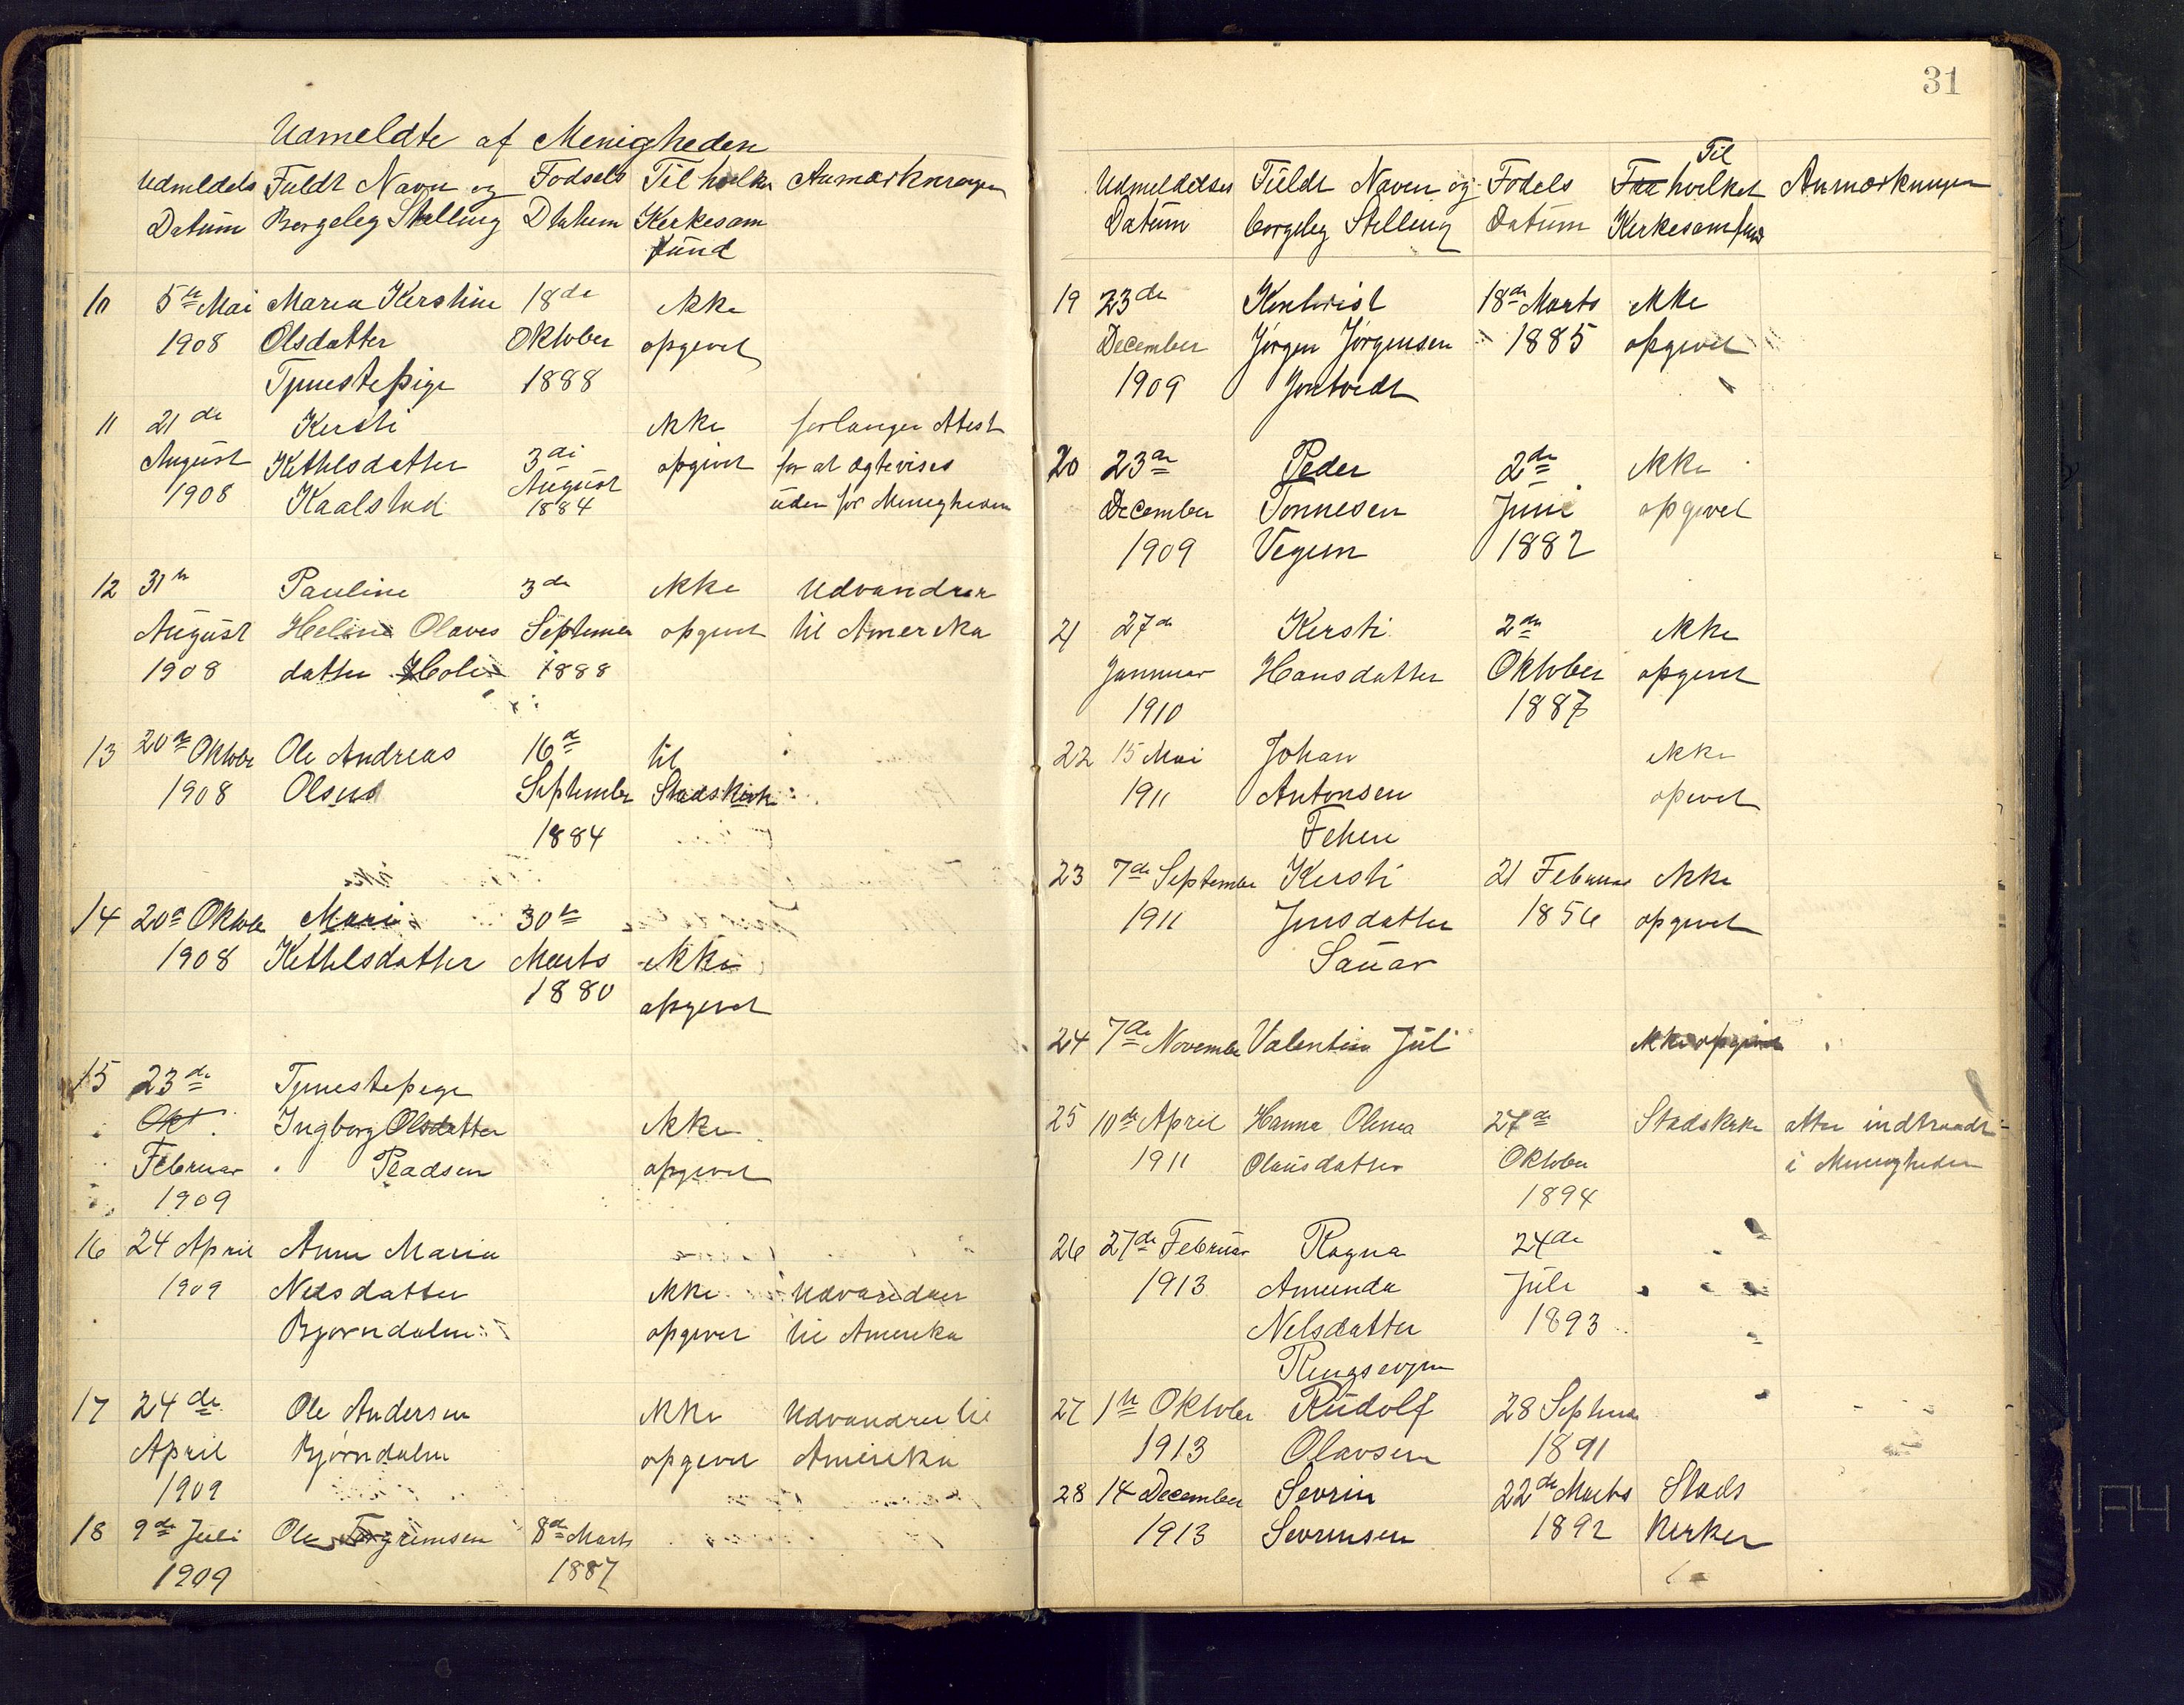 Udmeldte af Menigheden
Udmeldels Fuldt Navn og Fodsels Til hvilke Anmarkninger
Datum Borgeleg Stelling Dtatum Kerkesam
fund
10 5te Mai Maria Kerstine 18de ikke
1908 Olsdatter Oktober opgevet
Tjenestepige 1888
11 21de Kersti ikke forlanger Atest
August Kethelsdatter 3di opgivet for at ogtevises
1908 Kaalstad August 1884 uden for Menigheden
12 31te Pauline 3de ikke Udvandrer
August Heline Olaves September opgevet til Amerika
1908 datter Holi 1888
13 20de Oktober Ole Andreas 16de til
1908 Olsen September Stadskirk
1884
14 20de Oktober Mari 30te
1908 Kethelsdatter Marts ikke
1880 opgevet
15 23de Tjenestepege
Okt. Ingborg Olsdatter ikke
Februar Pladsen opgevet
1909
16 24 April Anne Maria
1909 Nelsdatter ikke Udvandrer
Bjorndalen opgevet til Amerika
17 24de Ole Andersen ikke Udvandrer til
April Bjørndalen opgevet Amereka
1909
18 9de Juli Ole Torgrimsen 8de Marts
1909 1887
31
Til
Udmeldelses Fuldt Naven og Fodels Fra hvilket Anmarkninger
Datum borgeleg Stelling Datum Kerkesamfund
19 23de 18de Marts ikke
December Jørgen Jørgensen 1885 opgevet
1909 Jontvedt
20 23de Peder 2de ikke
December Tonnesen Juni opgevet
1909 Vegum 1882
21 27de Kersti 2den ikke
Januar Hansdatter Oktober opgevet
1910 1887
22 15 Mai Johan ikke
1911 Antonsen opevet
Fehen
23 7de September Kersti 21 Februar ikke
1911 Jensdatter 1856 opgevet
Sauar
24 7de November Valentin Juli ikke opgivet
25 10de April Hanna Olena 27de Stadskerke atter indtraadt
1911 Olausdatter Oktober i Menigheden
1894
26 27de Februar Ragna 24de
1913 Amunda Jule
Nelsdatter 1893
Ringsevjen
27 1te Oktober Rudolf 28 September
1913 Olavsen 1891
28 14 December Sevrin 22de Marts Stads
1913 Sevrensen 1892 Kerken